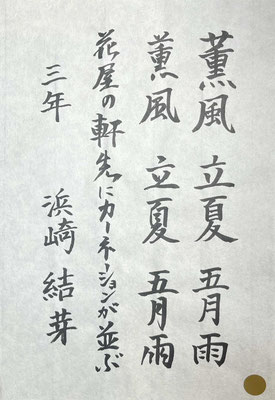 薫風 立夏 五月雨
薫風 立夏 五月雨
花屋の軒先にカーネーションが並ぶ
三年 浜崎 結芽